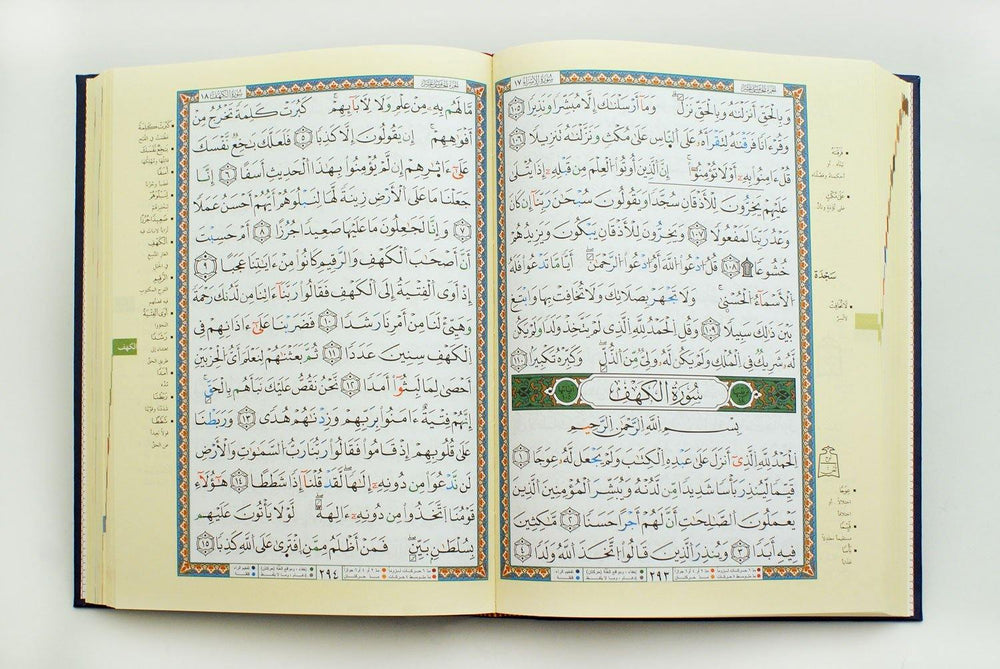 سُورَةُ الإِسْرَاءِ ١٧
الجُزْءُ الخَامِسَ عَشَرَ
وَبِٱلْحَقِّ أَنزَلْنَٰهُ وَبِٱلْحَقِّ نَزَلَ ۗ وَمَآ أَرْسَلْنَٰكَ إِلَّا مُبَشِّرًا وَنَذِيرًا ١٠٥
وَقُرْءَانًا فَرَقْنَٰهُ لِتَقْرَأَهُۥ عَلَى ٱلنَّاسِ عَلَىٰ مُكْثٍ وَنَزَّلْنَٰهُ تَنزِيلًا ١٠٦
قُلْ ءَامِنُوا۟ بِهِۦٓ أَوْ لَا تُؤْمِنُوٓا۟ ۚ إِنَّ ٱلَّذِينَ أُوتُوا۟ ٱلْعِلْمَ مِن قَبْلِهِۦٓ إِذَا يُتْلَىٰ
عَلَيْهِمْ يَخِرُّونَ لِلْأَذْقَانِ سُجَّدًا ١٠٧ وَيَقُولُونَ سُبْحَٰنَ رَبِّنَآ إِن كَانَ
وَعْدُ رَبِّنَا لَمَفْعُولًا ١٠٨ وَيَخِرُّونَ لِلْأَذْقَانِ يَبْكُونَ وَيَزِيدُهُمْ
خُشُوعًا ۩ ١٠٩ قُلِ ٱدْعُوا۟ ٱللَّهَ أَوِ ٱدْعُوا۟ ٱلرَّحْمَٰنَ ۖ أَيًّا مَّا تَدْعُوا۟ فَلَهُ
ٱلْأَسْمَآءُ ٱلْحُسْنَىٰ ۚ وَلَا تَجْهَرْ بِصَلَاتِكَ وَلَا تُخَافِتْ بِهَا وَٱبْتَغِ
بَيْنَ ذَٰلِكَ سَبِيلًا ١١٠ وَقُلِ ٱلْحَمْدُ لِلَّهِ ٱلَّذِى لَمْ يَتَّخِذْ وَلَدًا وَلَمْ يَكُن
لَّهُۥ شَرِيكٌ فِى ٱلْمُلْكِ وَلَمْ يَكُن لَّهُۥ وَلِىٌّ مِّنَ ٱلذُّلِّ ۖ وَكَبِّرْهُ تَكْبِيرًۢا ١١١
سُورَةُ الكَهْفِ
بِسْمِ ٱللَّهِ ٱلرَّحْمَٰنِ ٱلرَّحِيمِ
ٱلْحَمْدُ لِلَّهِ ٱلَّذِىٓ أَنزَلَ عَلَىٰ عَبْدِهِ ٱلْكِتَٰبَ وَلَمْ يَجْعَل لَّهُۥ عِوَجَا ١
قَيِّمًا لِّيُنذِرَ بَأْسًا شَدِيدًا مِّن لَّدُنْهُ وَيُبَشِّرَ ٱلْمُؤْمِنِينَ ٱلَّذِينَ
يَعْمَلُونَ ٱلصَّٰلِحَٰتِ أَنَّ لَهُمْ أَجْرًا حَسَنًا ٢ مَّٰكِثِينَ
فِيهِ أَبَدًا ٣ وَيُنذِرَ ٱلَّذِينَ قَالُوا۟ ٱتَّخَذَ ٱللَّهُ وَلَدًا ٤
٢٩٣
سَجْدَة
سُورَةُ الكَهْفِ ١٨
الجُزْءُ الخَامِسَ عَشَرَ
مَّا لَهُم بِهِۦ مِنْ عِلْمٍ وَلَا لِـَٔابَآئِهِمْ ۚ كَبُرَتْ كَلِمَةً تَخْرُجُ مِنْ
أَفْوَٰهِهِمْ ۚ إِن يَقُولُونَ إِلَّا كَذِبًا ٥ فَلَعَلَّكَ بَٰخِعٌ نَّفْسَكَ
عَلَىٰٓ ءَاثَٰرِهِمْ إِن لَّمْ يُؤْمِنُوا۟ بِهَٰذَا ٱلْحَدِيثِ أَسَفًا ٦ إِنَّا
جَعَلْنَا مَا عَلَى ٱلْأَرْضِ زِينَةً لَّهَا لِنَبْلُوَهُمْ أَيُّهُمْ أَحْسَنُ عَمَلًا
٧ وَإِنَّا لَجَٰعِلُونَ مَا عَلَيْهَا صَعِيدًا جُرُزًا ٨ أَمْ حَسِبْتَ
أَنَّ أَصْحَٰبَ ٱلْكَهْفِ وَٱلرَّقِيمِ كَانُوا۟ مِنْ ءَايَٰتِنَا عَجَبًا ٩
إِذْ أَوَى ٱلْفِتْيَةُ إِلَى ٱلْكَهْفِ فَقَالُوا۟ رَبَّنَآ ءَاتِنَا مِن لَّدُنكَ رَحْمَةً
وَهَيِّئْ لَنَا مِنْ أَمْرِنَا رَشَدًا ١٠ فَضَرَبْنَا عَلَىٰٓ ءَاذَانِهِمْ فِى
ٱلْكَهْفِ سِنِينَ عَدَدًا ١١ ثُمَّ بَعَثْنَٰهُمْ لِنَعْلَمَ أَىُّ ٱلْحِزْبَيْنِ
أَحْصَىٰ لِمَا لَبِثُوٓا۟ أَمَدًا ١٢ نَّحْنُ نَقُصُّ عَلَيْكَ نَبَأَهُم بِٱلْحَقِّ ۚ
إِنَّهُمْ فِتْيَةٌ ءَامَنُوا۟ بِرَبِّهِمْ وَزِدْنَٰهُمْ هُدًى ١٣ وَرَبَطْنَا
عَلَىٰ قُلُوبِهِمْ إِذْ قَامُوا۟ فَقَالُوا۟ رَبُّنَا رَبُّ ٱلسَّمَٰوَٰتِ وَٱلْأَرْضِ
لَن نَّدْعُوَا۟ مِن دُونِهِۦٓ إِلَٰهًا ۖ لَّقَدْ قُلْنَآ إِذًا شَطَطًا ١٤ هَٰٓؤُلَآءِ
قَوْمُنَا ٱتَّخَذُوا۟ مِن دُونِهِۦٓ ءَالِهَةً ۖ لَّوْلَا يَأْتُونَ عَلَيْهِم
بِسُلْطَٰنٍۭ بَيِّنٍ ۖ فَمَنْ أَظْلَمُ مِمَّنِ ٱفْتَرَىٰ عَلَى ٱللَّهِ كَذِبًا ١٥
٢٩٤
الكهف